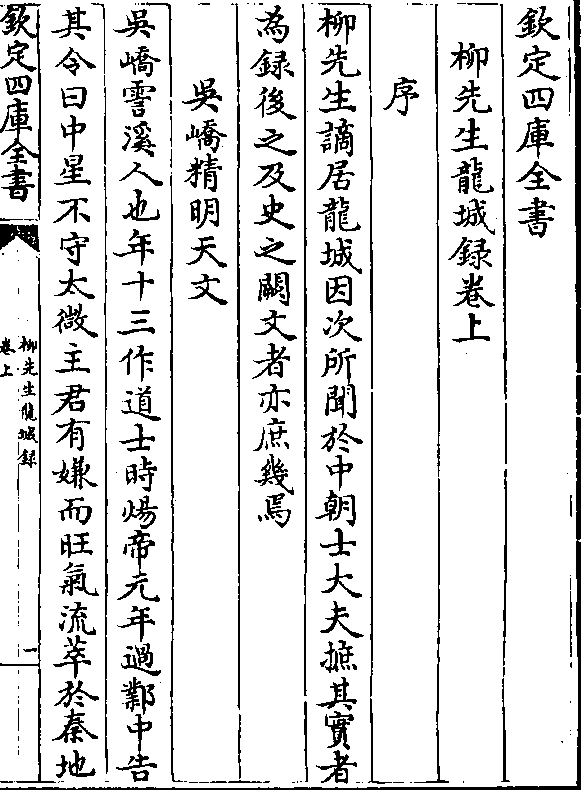 欽定四庫全書
柳先生龍城録卷上
序
柳先生謫居龍城因次所聞於中朝士大夫摭其實者
為録後之及史之闕文者亦庶幾焉
吳嶠精明天文
吳嶠霅溪人也年十三作道士時煬帝元年過鄴中告
其令曰中星不守太微主君有嫌而旺氣流萃於秦地
欽定四庫全書
柳先生龍城録
卷上
一